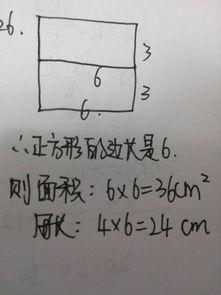 26.
3
6
3
6.
∴正方形的边长是6.
则面积：6×6=36cm²
周长：4×6=24 cm